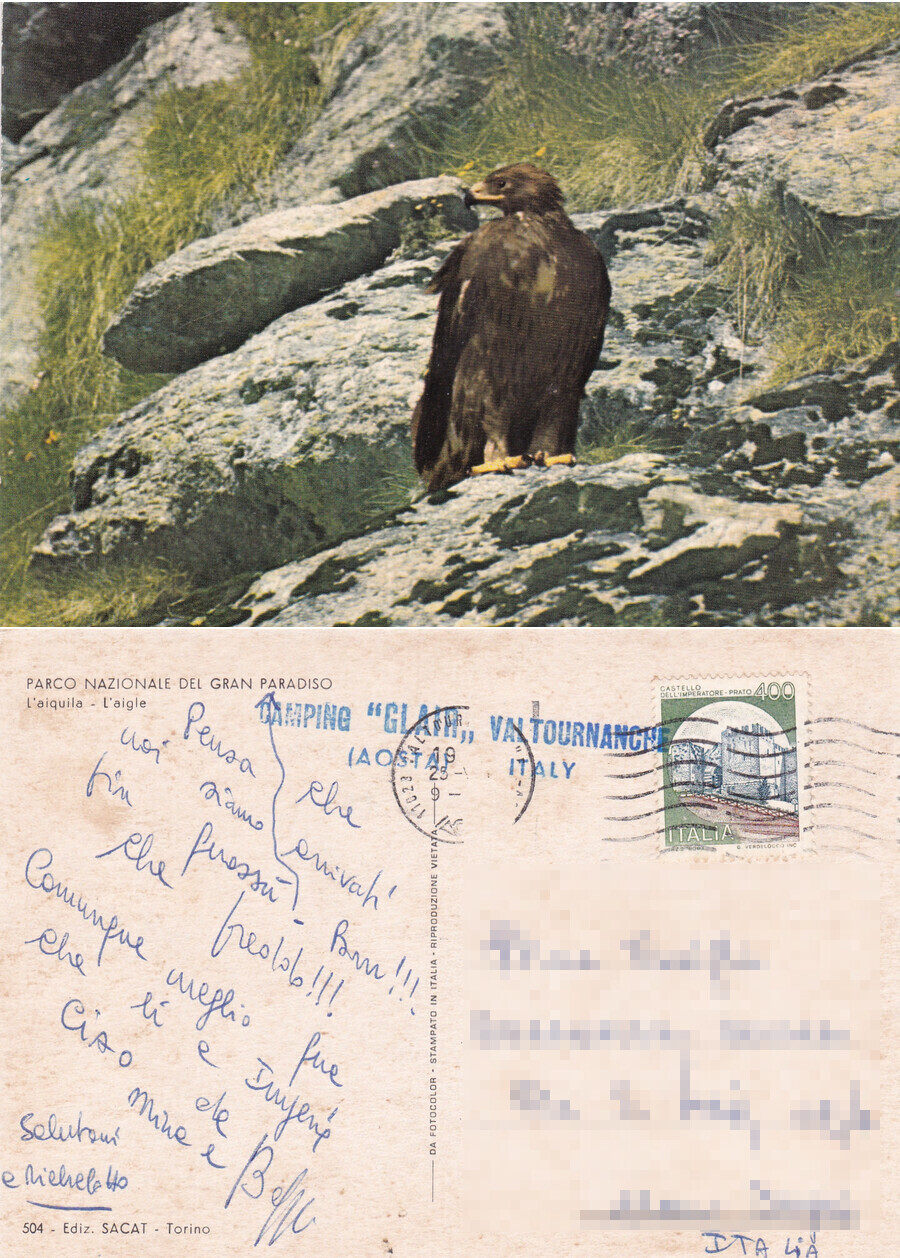 PARCO NAZIONALE DEL GRAN PARADISO
L'aiquila - L'aigle
CAMPING "GLAIR„ VALTOURNANCHE
(AOSTA) ITALY
CASTELLO
DELL'IMPERATORE - PRATO 400
ITALIA
11028 VALTOUR
19
23
9
Pensa che
noi siamo arrivati
fin quassù - Brrr!!!
che freddo!!!
Comunque meglio
che lì
Ciao e
da
Mina e Beppe
Salutoni
a Micheletto
DA FOTOCOLOR - STAMPATO IN ITALIA - RIPRODUZIONE VIETATA
504 - Ediz. SACAT - Torino
ITALIA